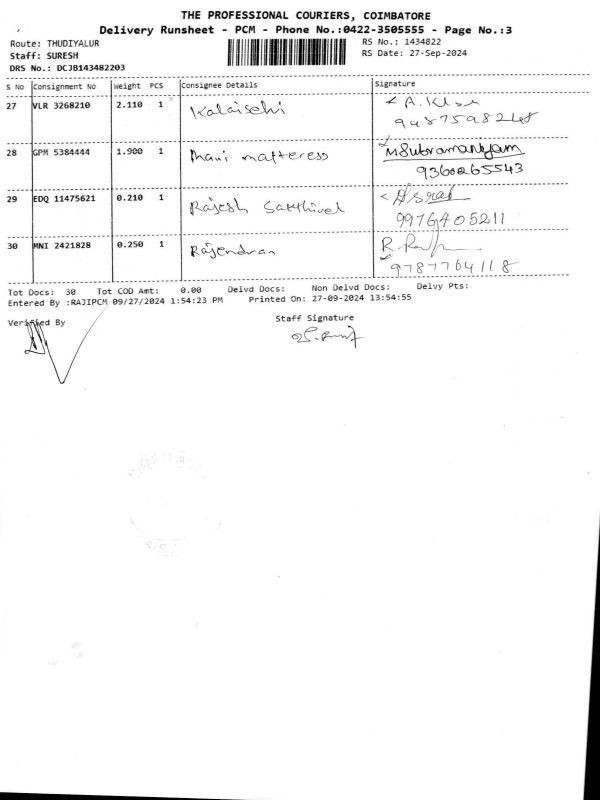 THE PROFESSIONAL COURIERS, COIMBATORE
Delivery Runsheet - PCM - Phone No.:0422-3505555 - Page No.:3
Route: THUDIYALUR
RS No.: 1434822
Staff: SURESH
RS Date: 27-Sep-2024
DRS No.: DCJB143482203
S No Consignment No Weight PCS Consignee Details Signature
27 VLR 3268210 2.110 1 Kalaiselvi
9487598248
28 GPM 5384444 1.900 1 Mani matteress M Subramaniyam
9360265543
29 EDQ 11475621 0.210 1 Rajesh Sakthivel
9976405211
30 MNI 2421828 0.250 1 Rajendran
9787764118
Tot Docs: 30 Tot COD Amt: 0.00 Delvd Docs: Non Delvd Docs: Delvy Pts:
Entered By :RAJIPCM 09/27/2024 1:54:23 PM Printed On: 27-09-2024 13:54:55
Verified By
Staff Signature